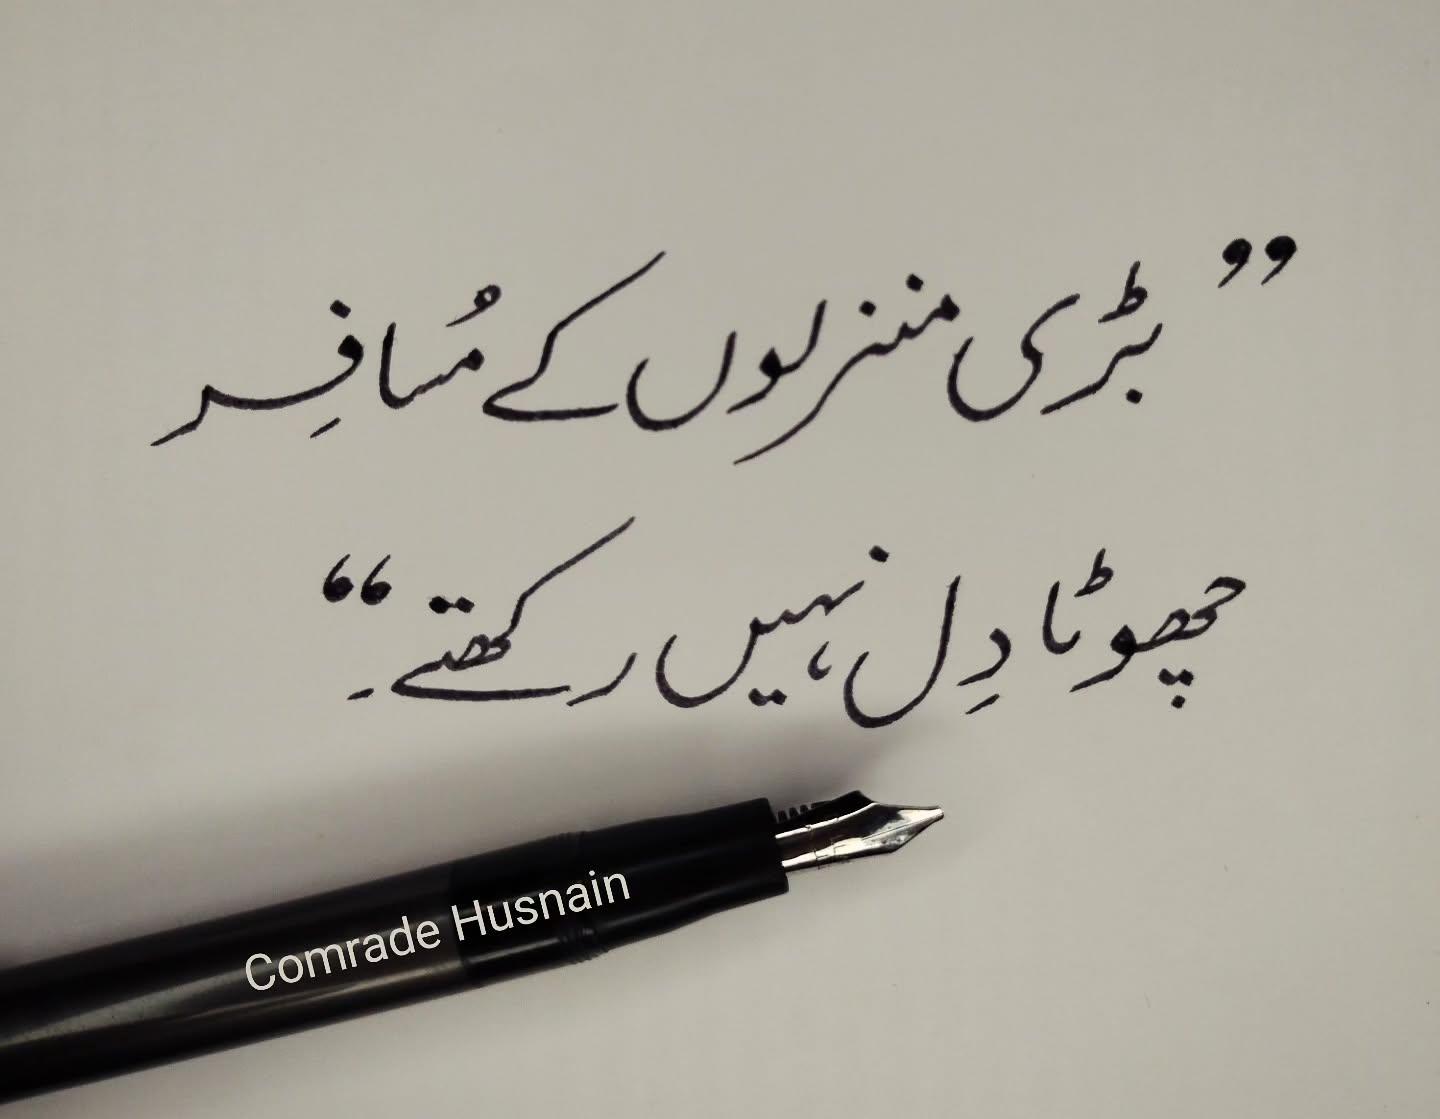 ”بڑی منزلوں کے مُسافِر
چھوٹا دِل نہیں رکھتے“
Comrade Husnain